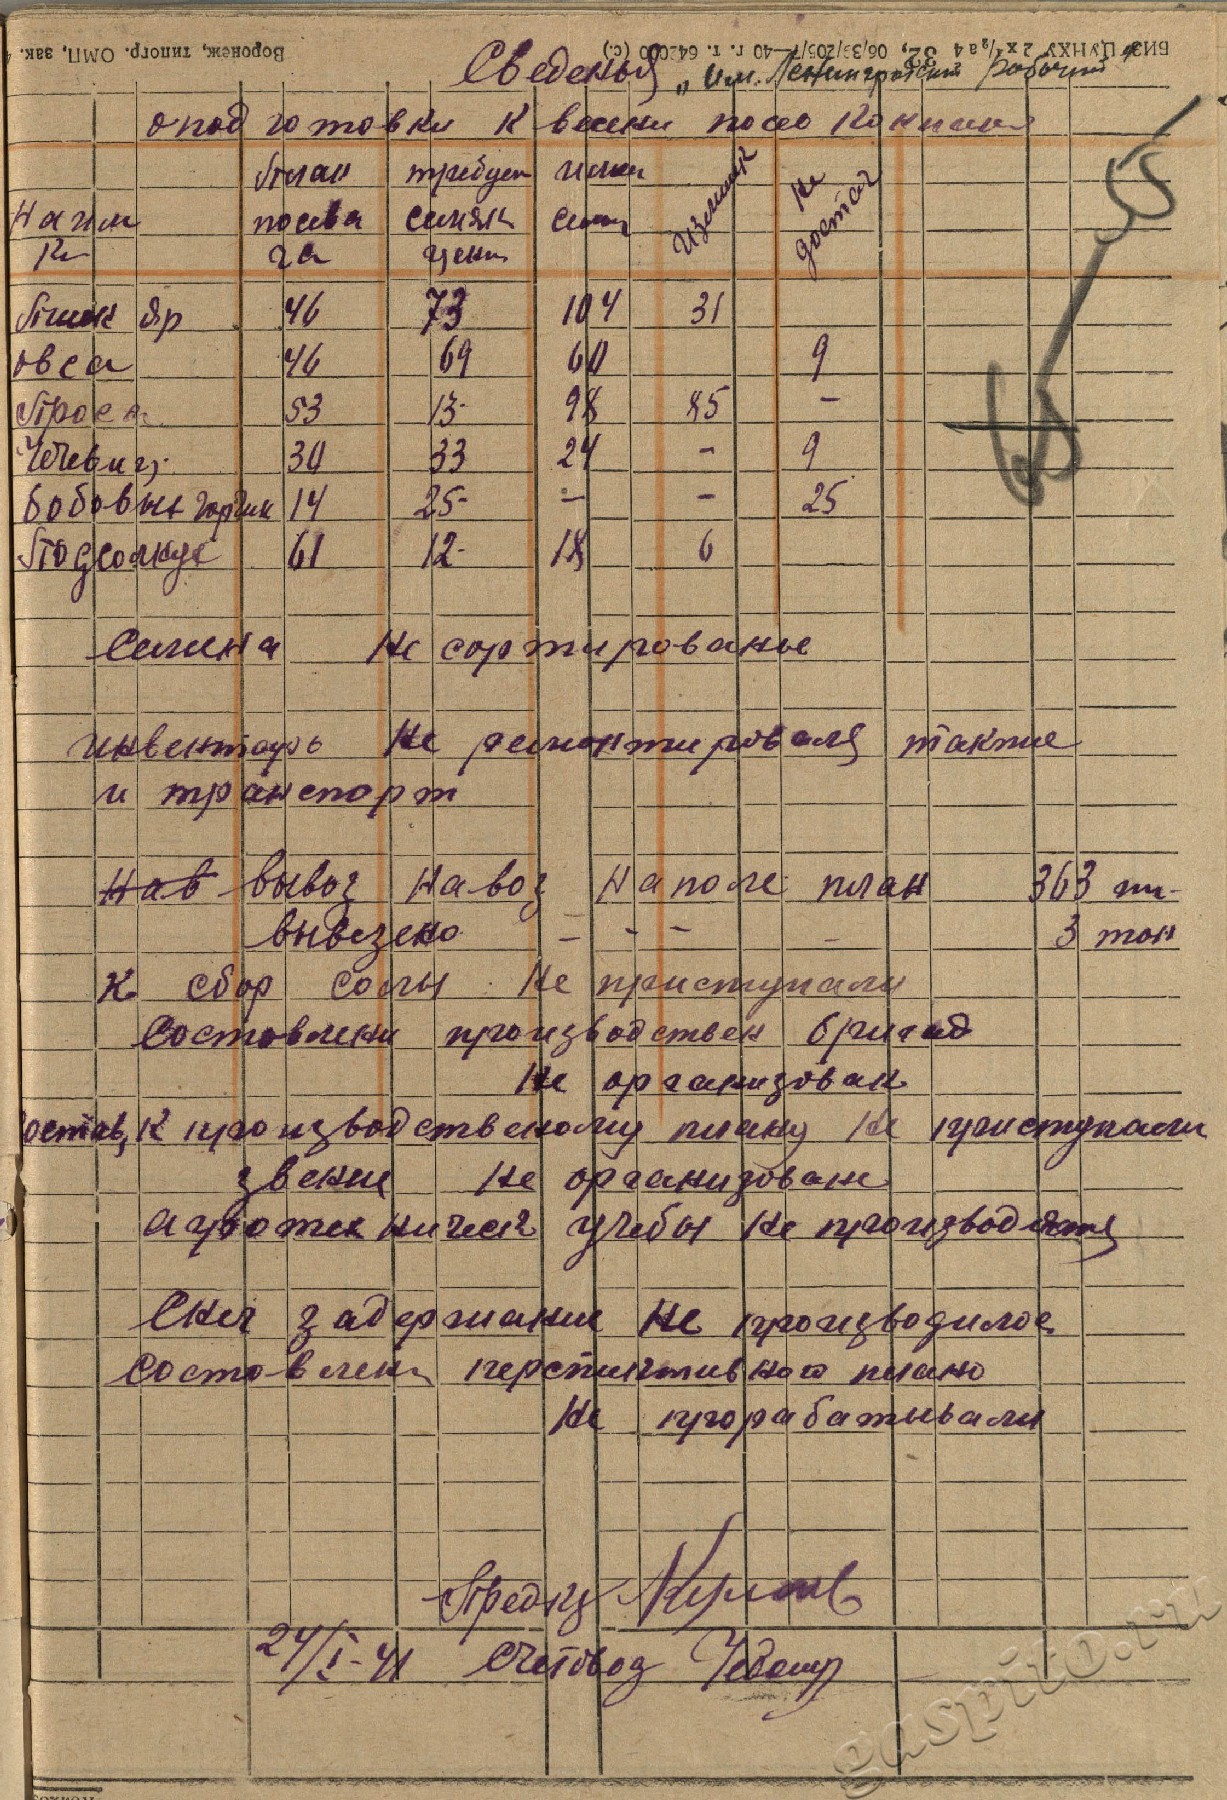 Воронеж, типогр. ОМП, зак.
БИЗ ЦУНХУ
Сведенья „им. Ленинградский рабочий"
о подготовки к весенне посев компания
План требуем имеи
Наим посева семян семян Излишк Не достач
К-р га цент
Пшен яр 46 73 104 31
Овса 46 69 60 9
Проса 53 13- 98 85 –
Чечевиц. 30 33 24 – 9
Бобовых горчик 14 25- – – 25
Подсолнух 61 12- 18 6
Семена не сортированые
Инвентарь не ремонтировался также
и транспорт
Нав вывоз навоз на поле план 363 тн-
вывезено – – – – 3 тон
к сбор солы не приступали
Составлени производствен бригад
не организован
состав, к производственому плану не приступали
звение не организован
агротехническ учебы не производятся
Снег задержание не производилос
Составлени перспиктивного плано
не прорабатывали
Предкз
24/I-41 Счетовод
gaspito.ru